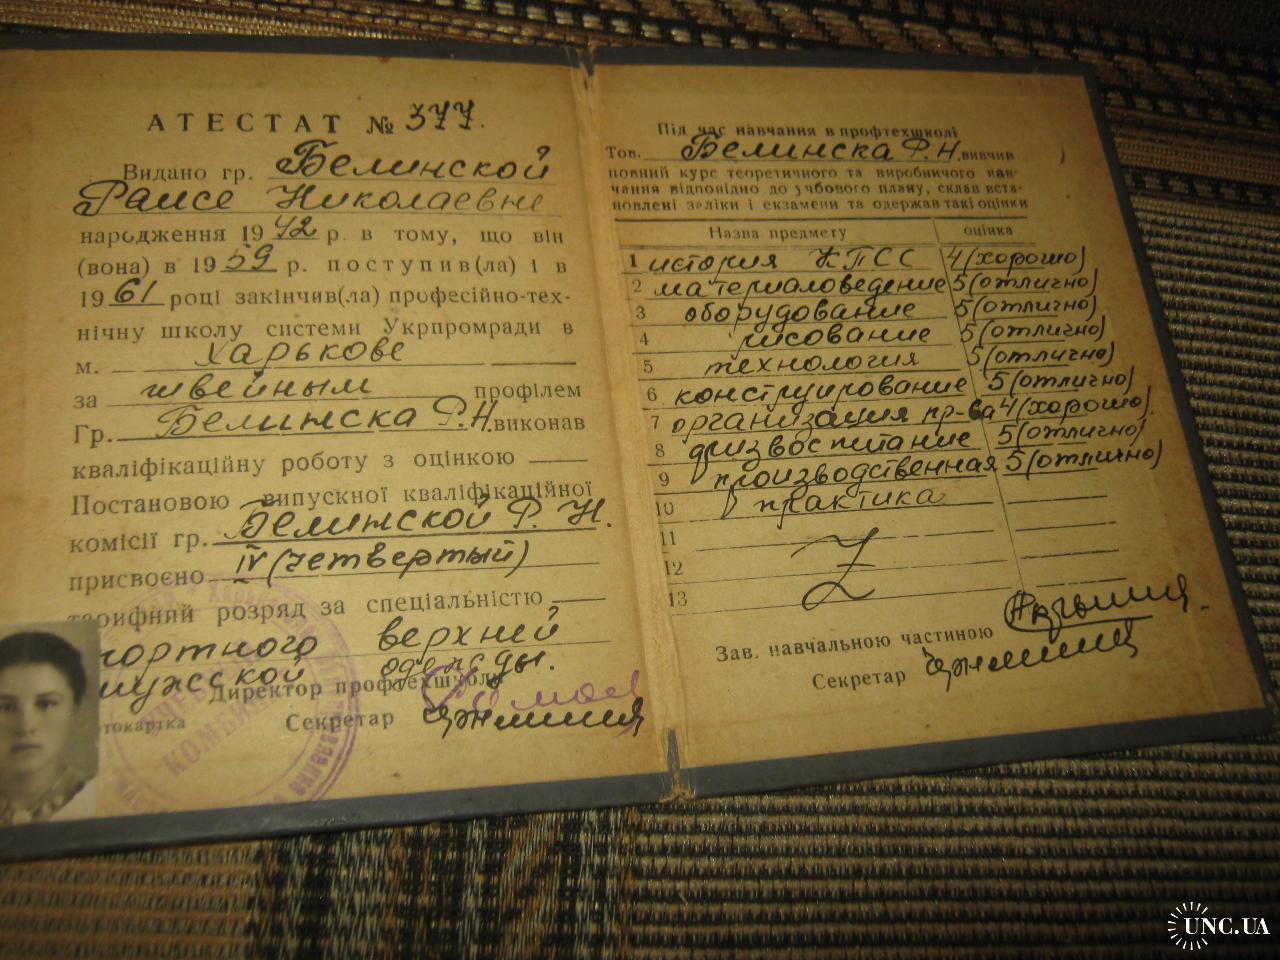 АТЕСТАТ № 377.
Видано гр. Белинской
Раисе Николаевне
народження 1942 р. в тому, що він
(вона) в 1959 р. поступив(ла) і в
1961 році закінчив(ла) професійно-тех-
нічну школу системи Укрпромради в
м. Харькове
за швейным профілем
Гр. Белинска Р.Н. виконав
кваліфікаційну роботу з оцінкою
Постановою випускної кваліфікаційної
комісії гр. Белинской Р. Н.
присвоєно IV (четвертый)
тарифний розряд за спеціальністю
портного верхней
мужской одежды.
Директор профтехшколи
Фотокартка Секретар
КОМБИНАТ
Під час навчання в профтехшколі
Тов. Белинска Р.Н. вивчив
повний курс теоретичного та виробничого нав-
чання відповідно до учбового плану, склав вста-
новлені заліки і екзамени та одержав такі оцінки
Назва предмету оцінка
1 история КПСС 4 (хорошо)
2 материаловедение 5 (отлично)
3 оборудование 5 (отлично)
4 рисование 5 (отлично)
5 технология 5 (отлично)
6 конструирование 5 (отлично)
7 организация пр-ва 4 (хорошо)
8 физвоспитание 5 (отлично)
9 производственная 5 (отлично)
10 практика
11
12
13
Зав. навчальною частиною
Секретар
UNC.UA